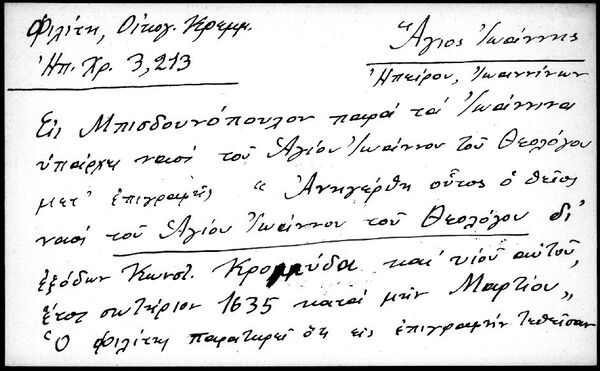 Φιλίτη, Οἰκογ. Κρεμμ.
Ἠπ. Χρ. 3,213
Ἅγιος Ἰωάννης
Ἠπείρου, Ἰωαννίνων
Εἰς Μπισδουνόπουλον παρὰ τὰ Ἰωάννινα
ὑπάρχει ναὸς τοῦ Ἁγίου Ἰωάννου τοῦ Θεολόγου
μετ' ἐπιγραφῆς "Ἀνηγέρθη οὗτος ὁ θεῖος
ναὸς τοῦ Ἁγίου Ἰωάννου τοῦ Θεολόγου δι'
ἐξόδων Κωνστ. Κρομμύδα καὶ υἱοῦ αὐτοῦ,
ἔτος σωτήριον 1635 κατὰ μῆν Μαρτίου"
Ὁ Φιλίτης παρατηρεῖ ὅτι εἰς ἐπιγραφὴν τεθεῖσαν